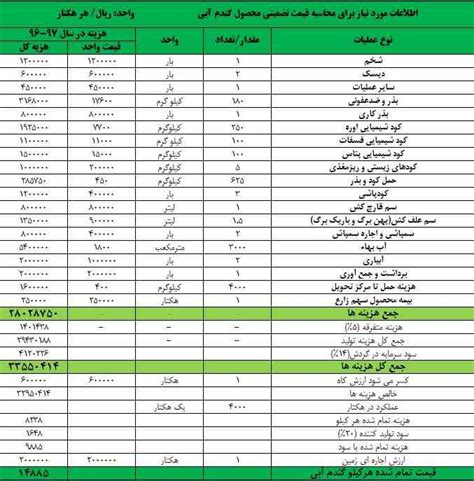 اطلاعات مورد نیاز برای محاسبه قیمت تضمینی محصول گندم آبی واحد: ریال/ هر هکتار
نوع عملیات مقدار/تعداد واحد هزینه در سال ۹۷-۹۶
قیمت واحد هزینه کل
شخم ۱ بار ۱۲۰۰۰۰۰ ۱۲۰۰۰۰۰
دیسک ۲ بار ۶۰۰۰۰۰ ۶۰۰۰۰۰
سایر عملیات ۱ بار ۴۵۰۰۰۰ ۴۵۰۰۰۰
بذر و ضدعفونی ۱۸۰ کیلو گرم ۱۷۶۰۰ ۳۱۶۸۰۰۰
بذر کاری ۱ بار ۸۰۰۰۰۰ ۸۰۰۰۰۰
کود شیمیایی اوره ۲۵۰ کیلوگرم ۷۷۰۰ ۱۹۲۵۰۰۰
کود شیمیایی فسفات ۱۰۰ کیلو گرم ۱۱۰۰۰ ۱۱۰۰۰۰۰
کود شیمیایی پتاس ۱۰۰ کیلوگرم ۱۵۰۰۰ ۱۵۰۰۰۰۰
کودهای زیستی و ریزمغذی ۵ کیلوگرم ۲۰۰۰۰۰ ۱۰۰۰۰۰۰
حمل کود و بذر ۶۲۵ کیلوگرم ۴۵۰ ۲۸۵۷۵۰
کودپاشی ۳ بار ۴۰۰۰۰۰ ۱۲۰۰۰۰۰
سم قارچ کش ۱ لیتر ۸۰۰۰۰۰ ۸۰۰۰۰۰
سم علف کش(پهن برگ و باریک برگ) ۱.۵ لیتر ۹۰۰۰۰۰ ۱۳۵۰۰۰۰
سمپاشی و اجاره سمپاش ۲ بار ۴۰۰۰۰۰ ۸۰۰۰۰۰
آب بهاء ۳۰۰۰ مترمکعب ۱۸۰۰ ۵۴۰۰۰۰۰
آبیاری ۲ بار ۱۰۰۰۰۰۰ ۲۰۰۰۰۰۰
برداشت و جمع آوری ۱ بار ۲۰۰۰۰۰۰ ۲۰۰۰۰۰۰
هزینه حمل تا مرکز تحویل ۴۰۰۰ کیلوگرم ۴۰۰ ۱۶۰۰۰۰۰
بیمه محصول سهم زارع ۱ هکتار ۲۵۰۰۰۰ ۲۵۰۰۰۰
جمع هزینه ها ۲۸۰۲۸۷۵۰
هزینه متفرقه (۵٪) - - - ۱۴۰۱۴۳۸
جمع کل هزینه تولید - - - ۲۹۴۳۰۱۸۸
سود سرمایه در گردش(۱۴٪) ۴۱۲۰۲۲۶
جمع کل هزینه ها ۳۳۵۵۰۴۱۴
کسر می شود ارزش کاه ۱ هکتار ۶۰۰۰۰۰ ۶۰۰۰۰۰
خالص هزینه ها ۳۲۹۵۰۴۱۴
عملکرد در هکتار ۴۰۰۰ یک هکتار
هزینه تمام شده هر کیلو ۸۲۳۸
سود تولید کننده (۲۰٪) ۱۶۴۸
هزینه تمام شده با سود ۹۸۸۵
ارزش اجاره ای زمین ۱ هکتار ۲۰۰۰۰۰۰۰ ۲۰۰۰۰۰۰۰
قیمت تمام شده هرکیلو گندم آبی ۱۴۸۸۵